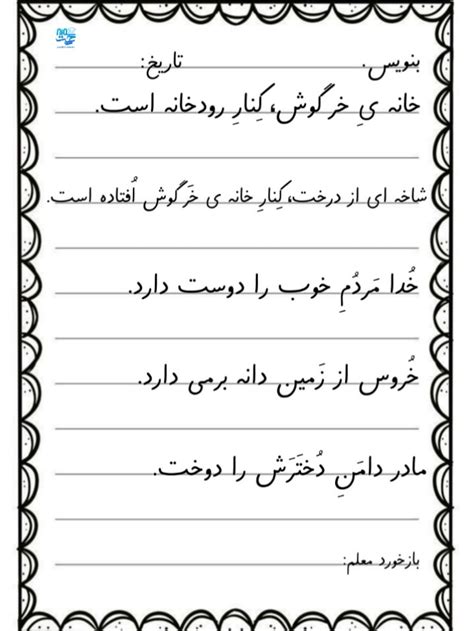 بنویس. تاریخ:
خانه یِ خرگوش، کِنارِ رودخانه است.
شاخه ای از درخت، کِنارِ خانه ی خَرگوش اُفتاده است.
خُدا مَردُمِ خوب را دوست دارد.
خُروس از زَمین دانه برمی دارد.
مادر دامَنِ دُختَرَش را دوخت.
بازخورد معلم: